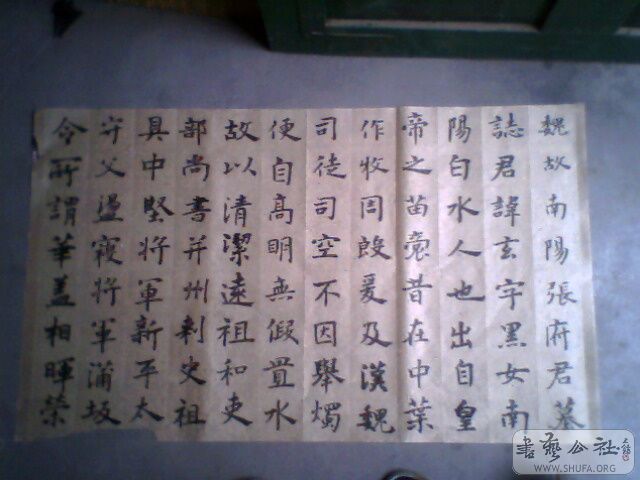 魏故南陽張府君墓
誌君諱玄字黑女南
陽白水人也出自皇
帝之苗裔昔在中葉
作牧周殷爰及漢魏
司徒司空不因舉燭
便自高明無假置水
故以清潔遠祖和吏
部尚書并州刺史祖
具中堅將軍新平太
守父盪寇將軍蒲坂
令所謂華蓋相暉榮
書藝公社
WWW.SHUFA.ORG